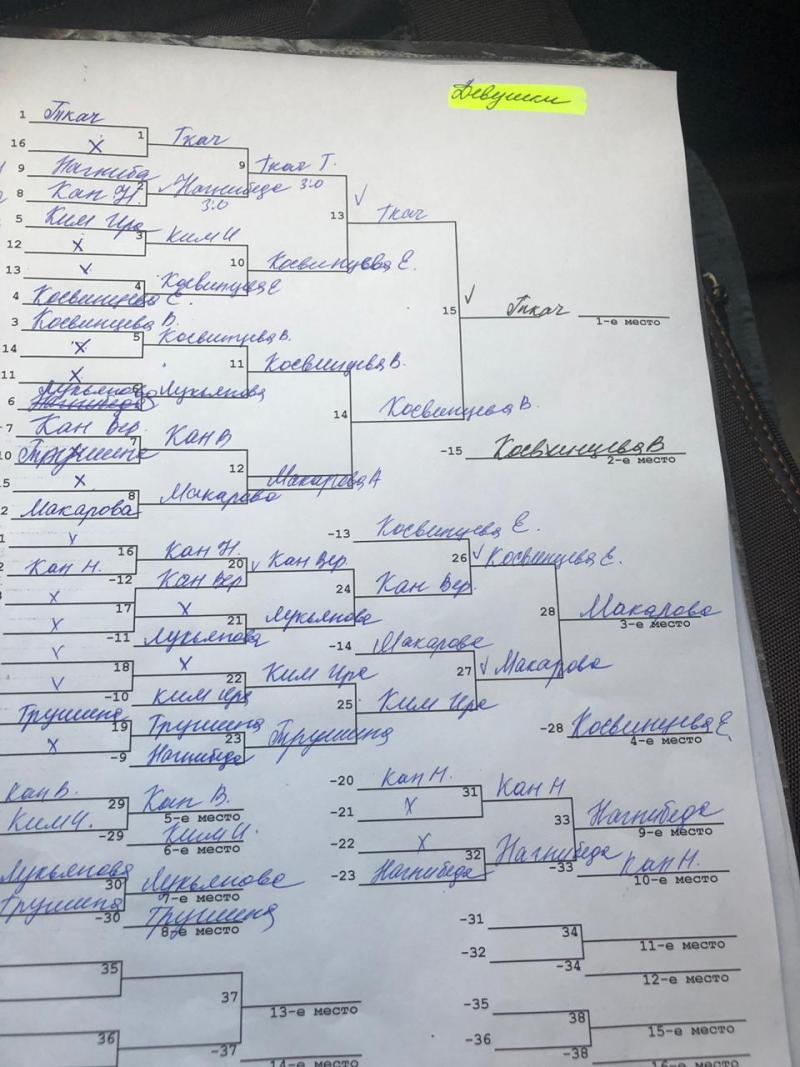 Девушки
1 Ткач
1
16 X
Ткач
9 Нагниба
2
8 Кан Н.
Нагнибеда
3:0
9
Ткач Т.
3:0
5 Ким Ира
3
12 X
Ким И
13 X
4
4 Косвинцева Е.
Косвинцева Е
10
Косвинцева Е.
13
Ткач
3 Косвинцева В.
5
14 X
Косвинцева В.
11 X
6
6 Лукьянова
Лукьянова
11
Косвинцева В.
7 Кан Вер.
7
10 Трушина
Кан В
15 X
8
2 Макарова
Макарова
12
Макарова А
14
Косвинцева В.
15
Ткач
1-е место
-15 Косвинцева В
2-е место
16
Кан Н.
Кан Н.
-12 Кан Вер
20
Кан Вер.
X
17
X
X
-11 Лукьянова
21
Лукьянова
24
Кан Вер.
-13 Косвинцева Е.
26
Косвинцева Е.
18
X
-10 Ким Ира
22
Ким Ира
Трушина
19
X
Трушина
-9 Нагнибеда
23
Трушина
25
Ким Ира
-14 Макарова
27
Макарова
28
Макарова
3-е место
-28 Косвинцева Е.
4-е место
Кан В.
29
Ким И.
Кан В.
5-е место
-29 Ким И.
6-е место
Лукьянова
30
Трушина
Лукьянова
7-е место
-30 Трушина
8-е место
-20 Кан Н.
31
-21 X
Кан Н
-22 X
32
-23 Нагнибеда
Нагнибеда
33
Нагнибеда
9-е место
-33 Кан Н.
10-е место
-31
34
-32
11-е место
-34
12-е место
35
36
37
13-е место
-37
14-е место
-35
38
-36
15-е место
-38
16-е место